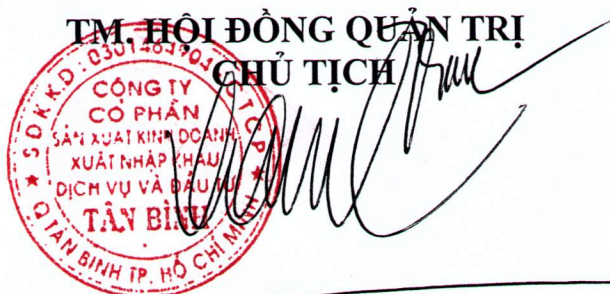 TM. HỘI ĐỒNG QUẢN TRỊ
CHỦ TỊCH
CÔNG TY
CỔ PHẦN
SẢN XUẤT KINH DOANH
XUẤT NHẬP KHẨU
DỊCH VỤ VÀ ĐẦU TƯ
TÂN BÌNH
Q TÂN BÌNH TP. HỒ CHÍ MINH